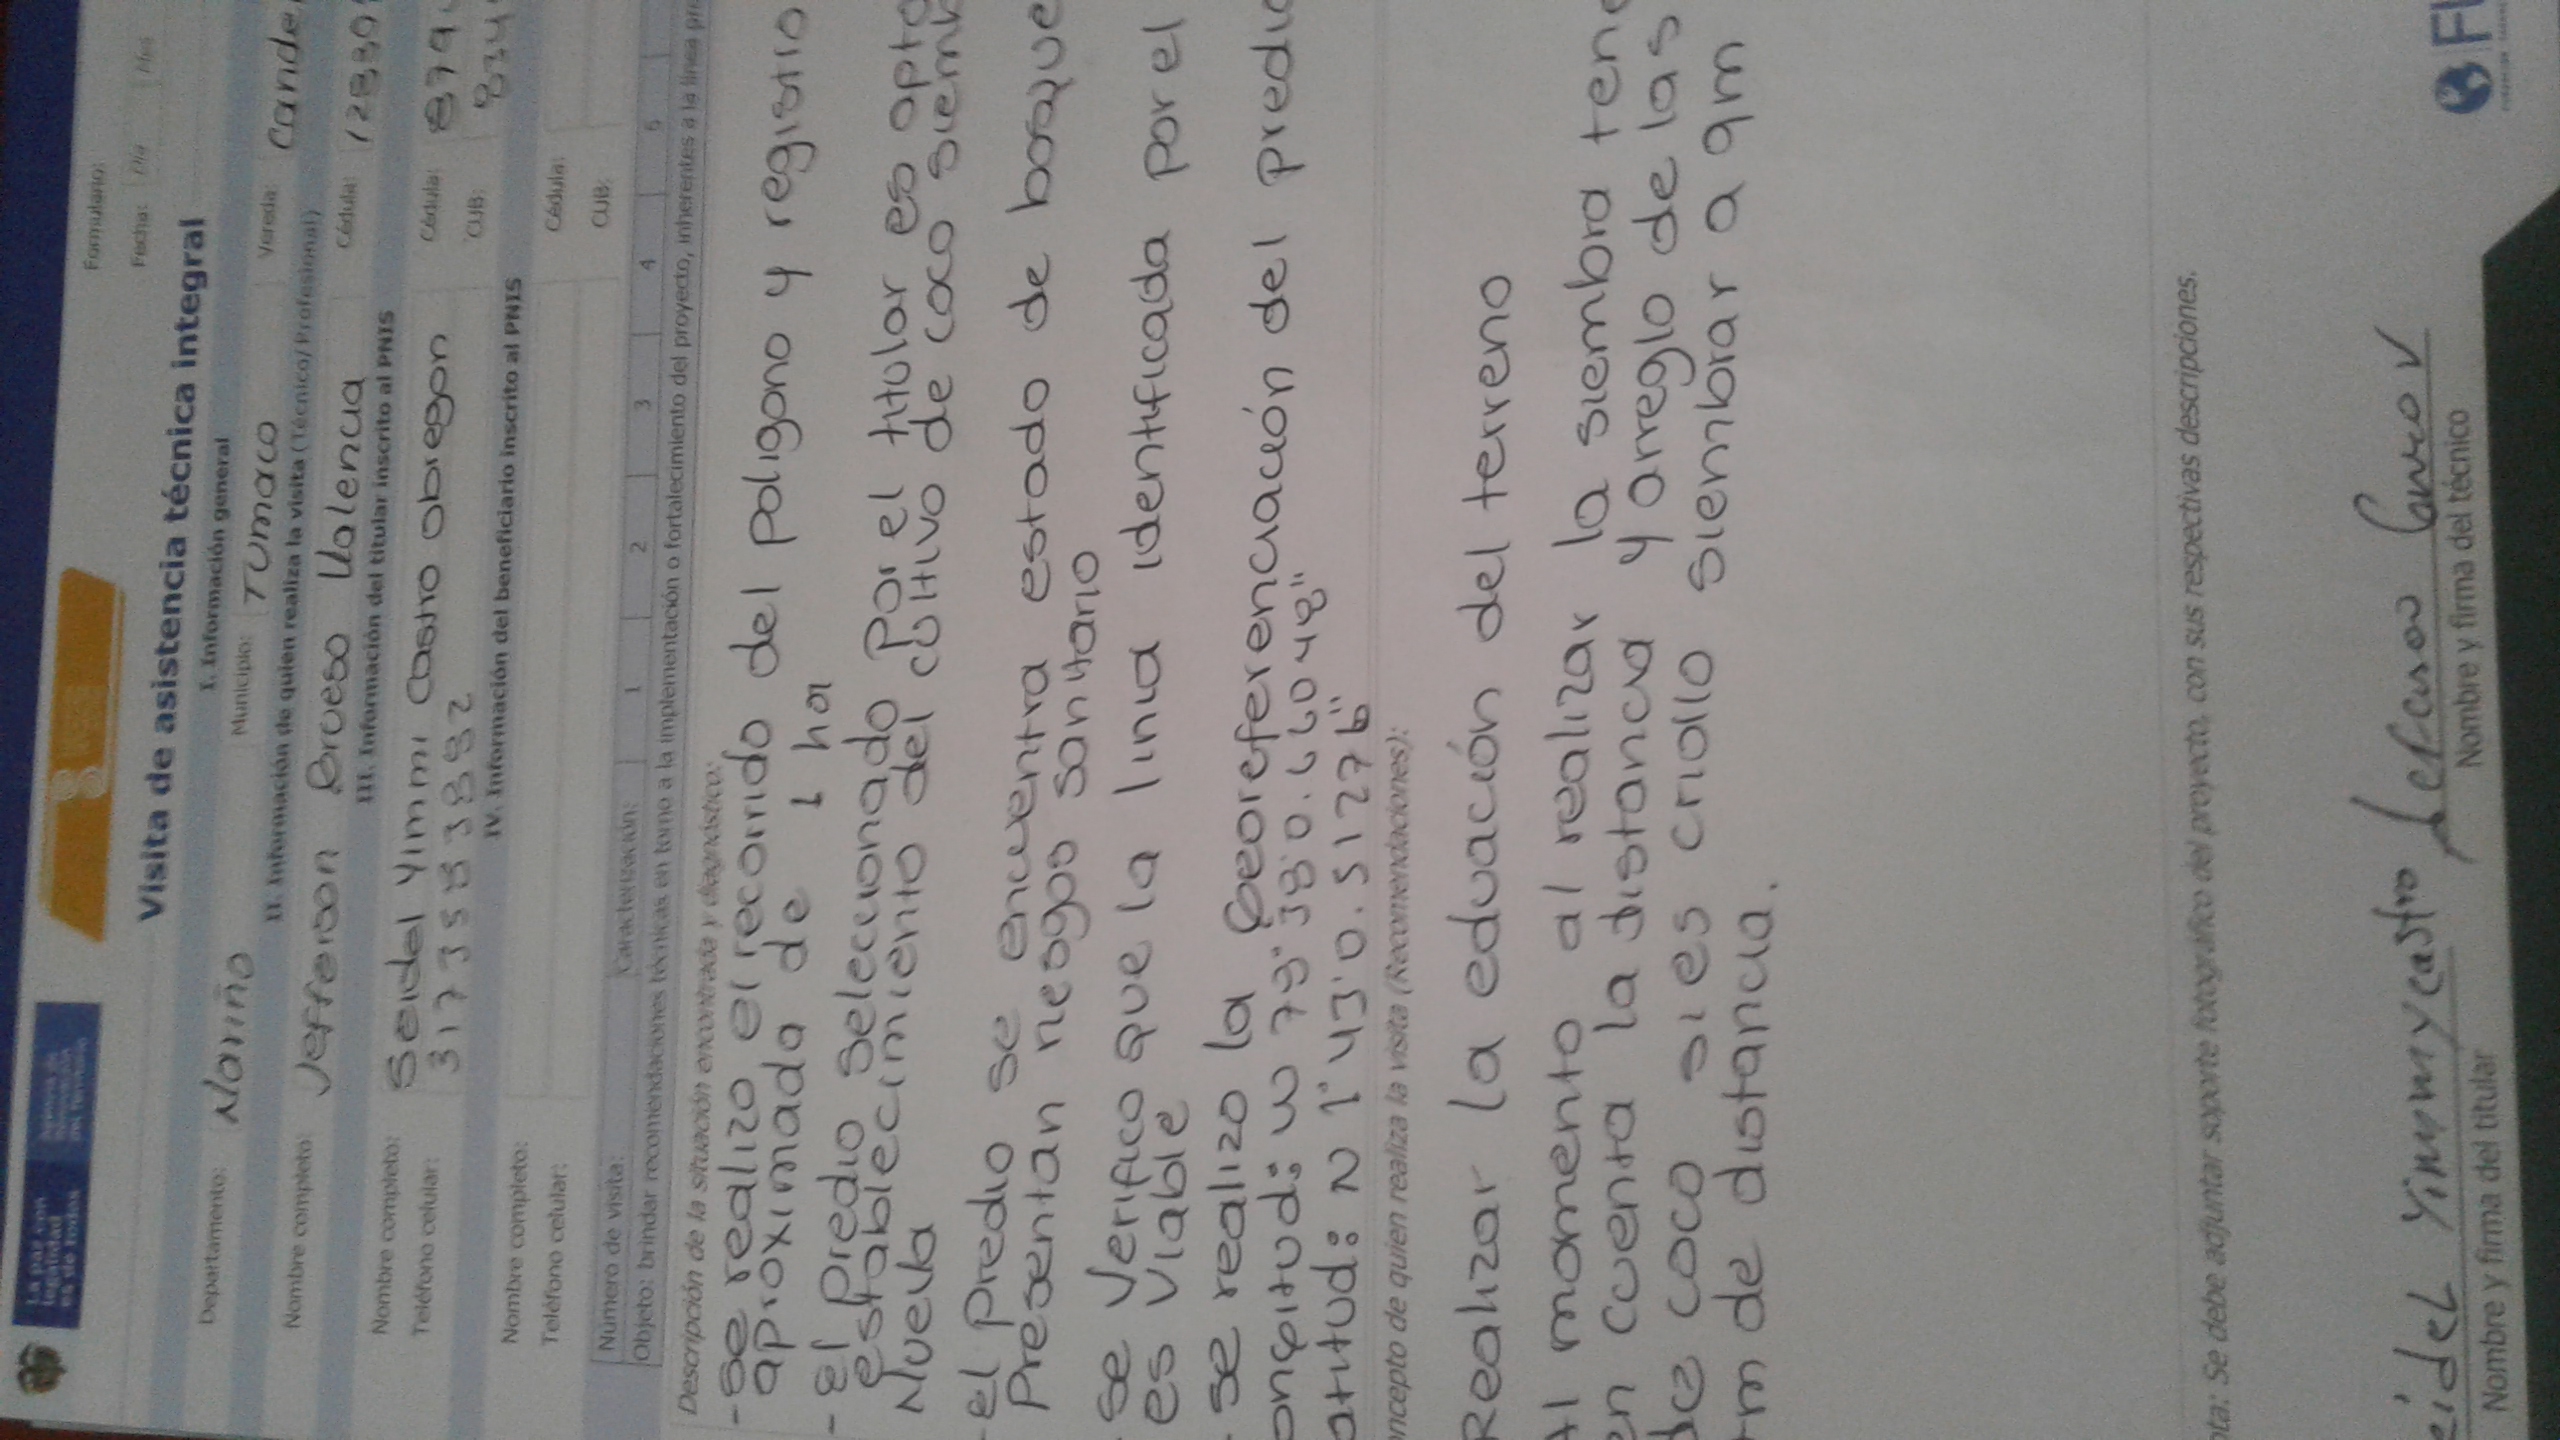 La paz con
legalidad
es de todos
Formulario:
Fecha: Día Mes
Visita de asistencia técnica integral
I. Información general
Departamento: Nariño Municipio: TUmaco Vereda: Cande
II. Información de quien realiza la visita (Técnico/ Profesional)
Nombre completo: Jefferson Brueso Valencia Cédula: 12880
III. Información del titular inscrito al PNIS
Nombre completo: Seidel Yimmi Castro obregon Cédula: 879
Teléfono celular: 3173583882 CUB: 834
IV. Información del beneficiario inscrito al PNIS
Nombre completo: Cédula:
Teléfono celular: CUB:
Número de visita: Caracterización: 1 2 3 4 5
Objeto: brindar recomendaciones técnicas en torno a la implementación o fortalecimiento del proyecto, inherentes a la línea pr
Descripción de la situación encontrada y diagnóstico:
- se realizo el recorrido del poligono y registro
aproximada de 1 ha
- el predio seleccionado por el titular es apto
establecimiento del cultivo de coco siemb
Nueva
- el predio se encuentra estado de bosque
Presentan riesgos sanitario
- se verifico que la linia identificada por el
es viable
- se realizo la Georeferenciación del predio
ongitud: W 79° 38' 0.66048"
atitud: N 1° 43' 0.51276"
oncepto de quien realiza la visita (Recomendaciones):
Realizar la eduación del terreno
Al momento al realizar la siembra ten
en cuenta la distancia y arreglo de las
de coco si es criollo siembrar a 9m
m de distancia.
ota: Se debe adjuntar soporte fotográfico del proyecto, con sus respectivas descripciones.
eidel Yimmy castro
Nombre y firma del titular
Nombre y firma del técnico
FU